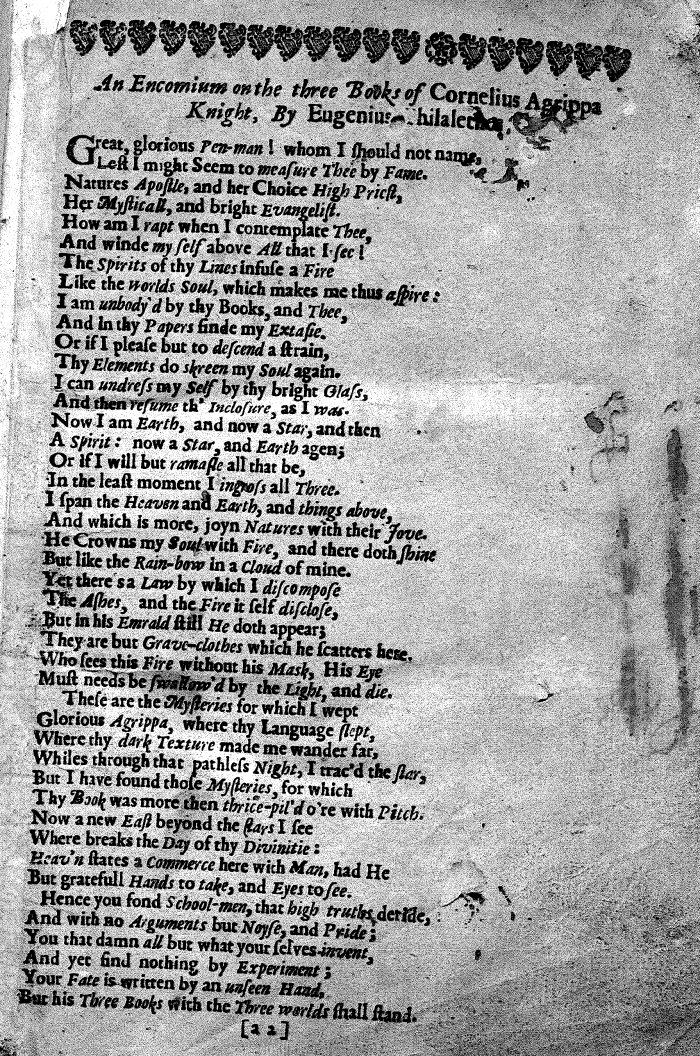 An Encomium on the three Books of Cornelius Agrippa
Knight, By Eugenius hilalethes.
Great, glorious Pen-man! whom I ſhould not name,
Leſt I might Seem to meaſure Thee by Fame.
Natures Apoſtle, and her Choice High Prieſt,
Her Myſticall, and bright Evangeliſt.
How am I rapt when I contemplate Thee,
And winde my ſelf above All that I ſee!
The Spirits of thy Lines infuſe a Fire
Like the worlds Soul, which makes me thus aſpire:
I am unbody'd by thy Books, and Thee,
And in thy Papers finde my Extaſie.
Or if I pleaſe but to deſcend a ſtrain,
Thy Elements do skreen my Soul again.
I can undreſs my Self by thy bright Glaſs,
And then reſume th' Incloſure, as I was.
Now I am Earth, and now a Star, and then
A Spirit: now a Star, and Earth agen;
Or if I will but ramaſle all that be,
In the leaſt moment I ingroſs all Three.
I ſpan the Heaven and Earth, and things above,
And which is more, joyn Natures with their Jove.
He Crowns my Soul with Fire, and there doth ſhine
But like the Rain-bow in a Cloud of mine.
Yet there's a Law by which I diſcompoſe
The Aſhes, and the Fire it ſelf diſcloſe,
But in his Emrald ſtill He doth appear;
They are but Grave-clothes which he ſcatters here.
Who ſees this Fire without his Mask, His Eye
Muſt needs be ſwallow'd by the Light, and die.
Theſe are the Myſteries for which I wept
Glorious Agrippa, where thy Language ſlept,
Where thy dark Texture made me wander far,
Whiles through that pathleſs Night, I trac'd the ſtar,
But I have found thoſe Myſteries, for which
Thy Book was more then thrice-pil'd o're with Pitch.
Now a new Eaſt beyond the ſtars I ſee
Where breaks the Day of thy Divinitie:
Heav'n ſtates a Commerce here with Man, had He
But gratefull Hands to take, and Eyes to ſee.
Hence you fond School-men, that high truths deride,
And with no Arguments but Noyſe, and Pride;
You that damn all but what your ſelves invent,
And yet find nothing by Experiment;
Your Fate is written by an unſeen Hand,
But his Three Books with the Three worlds ſhall ſtand.
[a 2]